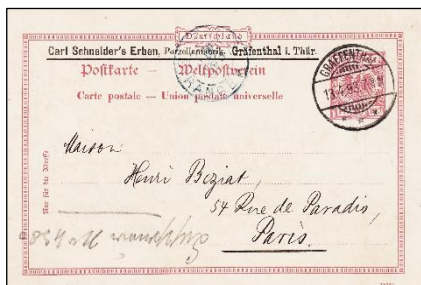 Deutschland
Carl Schneider's Erben, Porzellanfabrik, Gräfenthal i. Thür.
Postkarte – Weltpostverein
Carte postale – Union postale universelle
GRAEFENTHAL
13.4.93
Maison
Henri Beziat,
54 Rue de Paradis,
Paris.
Nur für die Adresse